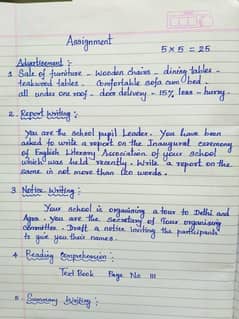 Assignment
5 x 5 = 25
Advertisement :
1 Sale of furniture - wooden chairs - dining tables -
teakwood tables - comfortable sofa cum bed -
all under one roof - door delivery - 15% less - hurry.
2. Report Writing :
You are the school pupil Leader. You have been
asked to write a report on the Inaugural ceremony
of English Literary Association of your school
which was held recently. Write a report on the
same in not more than 100 words.
3 Notice Writing :
Your school is organising a tour to Delhi and
Agra. You are the secretary of Tour organising
committee. Draft a notice inviting the participants
to give you their names.
4 Reading Comprehension :
Text Book Page No 111
5 Summary Writing :